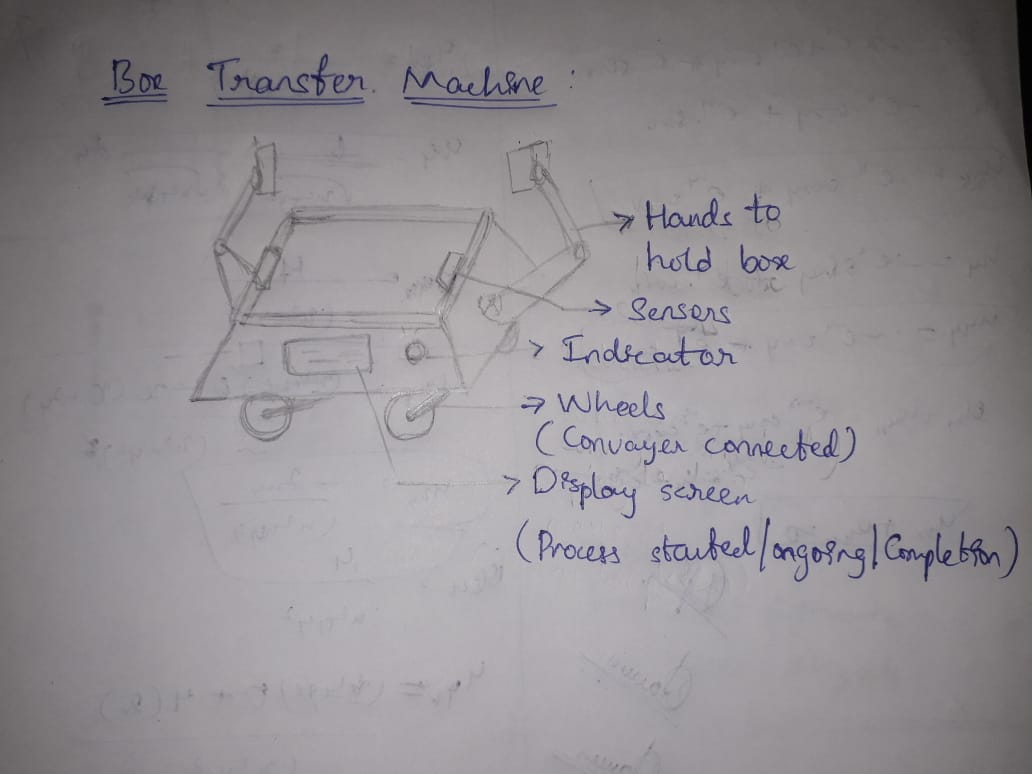 Box Transfer Machine :
→ Hands to
hold box
→ Sensors
> Indicator
→ Wheels
(Convayer connected)
> Display screen
(Process started/ongoing/Completion)